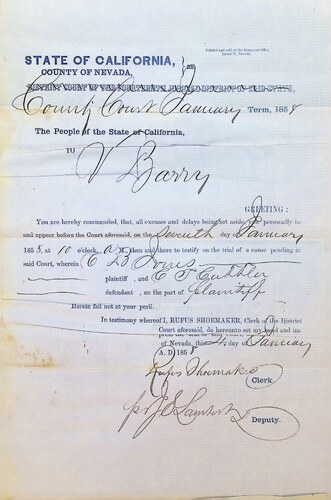 STATE OF CALIFORNIA,
COUNTY OF NEVADA,
County Court January Term, 1858
The People of the State of California,
TO
V Barry
GREETING:
You are hereby commanded, that, all excuses and delays being set aside, you personally be
and appear before the Court aforesaid, on the Seventh day of January
1858, at 10 o'clock, A M, then and there to testify on the trial of a cause pending in
said Court, wherein C B Jones
plaintiff, and C T
defendant, on the part of plaintiff
Herein fail not at your peril
In testimony whereof I, RUFUS SHOEMAKER, Clerk of the District
Court aforesaid, do hereunto set my hand
of Nevada, this 4 day January
A. D 1858
Rufus Shoemaker
Clerk.
pr J S Lambert
Deputy.